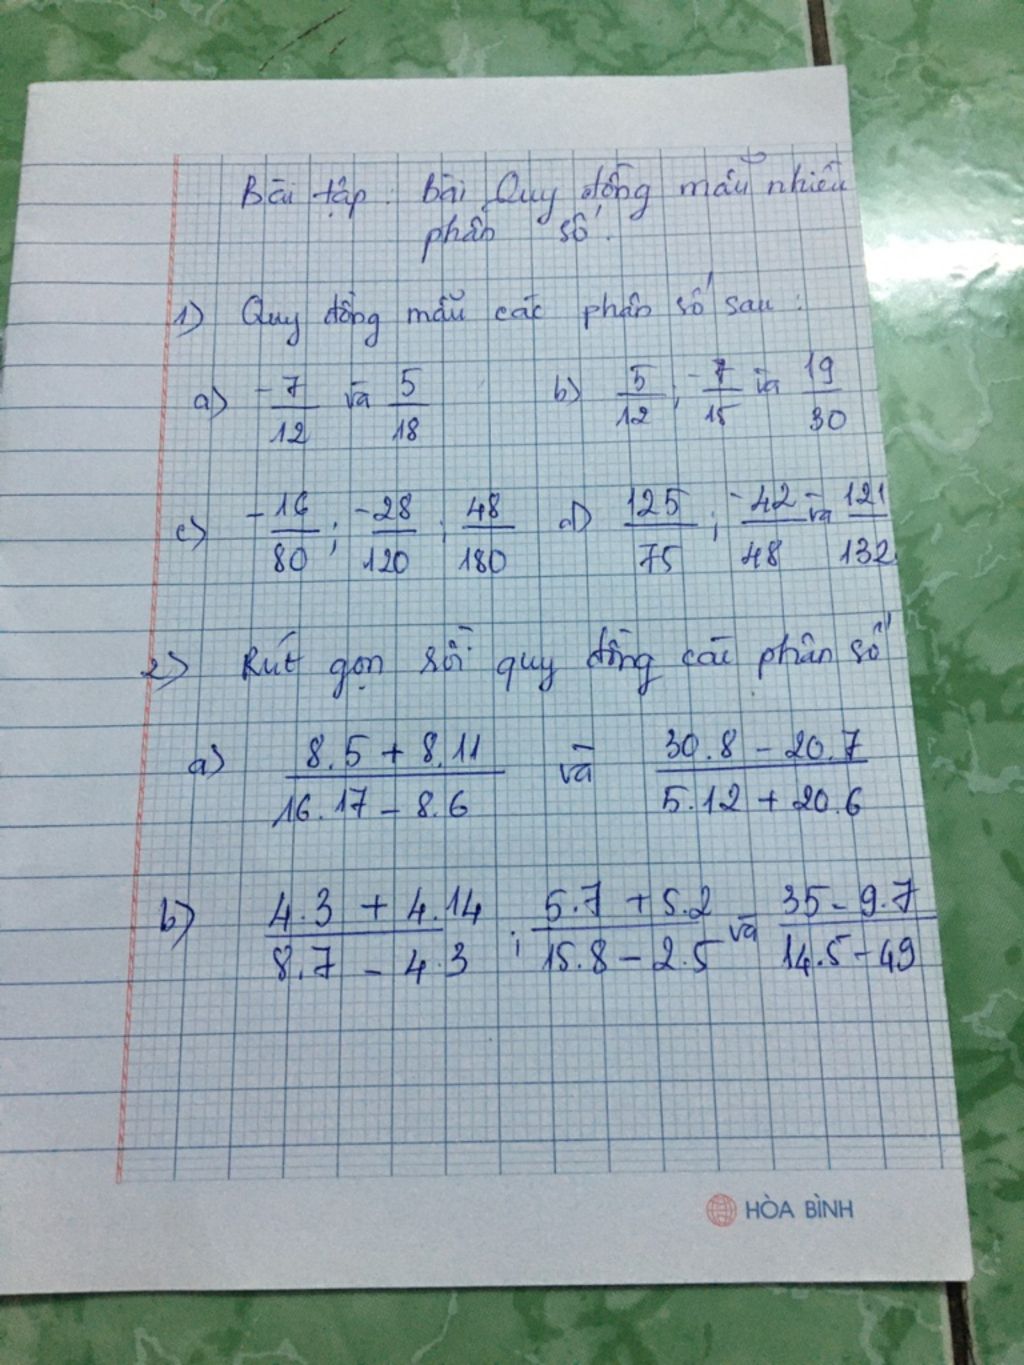 Bài tập : Bài Quy đồng mẫu nhiều
phân số.
1) Quy đồng mẫu các phân số sau :
a) -7/12 và 5/18 b) 5/12 ; -7/15 và 19/30
c) -16/80 ; -28/120 ; 48/180 d) 125/75 ; -42/48 và 121/132
2) Rút gọn rồi quy đồng các phân số
a) (8.5 + 8.11)/(16.17 - 8.6) và (30.8 - 20.7)/(5.12 + 20.6)
b) (4.3 + 4.14)/(8.7 - 4.3) ; (5.7 + 5.2)/(15.8 - 2.5) và (35 - 9.7)/(14.5 - 49)
HÒA BÌNH